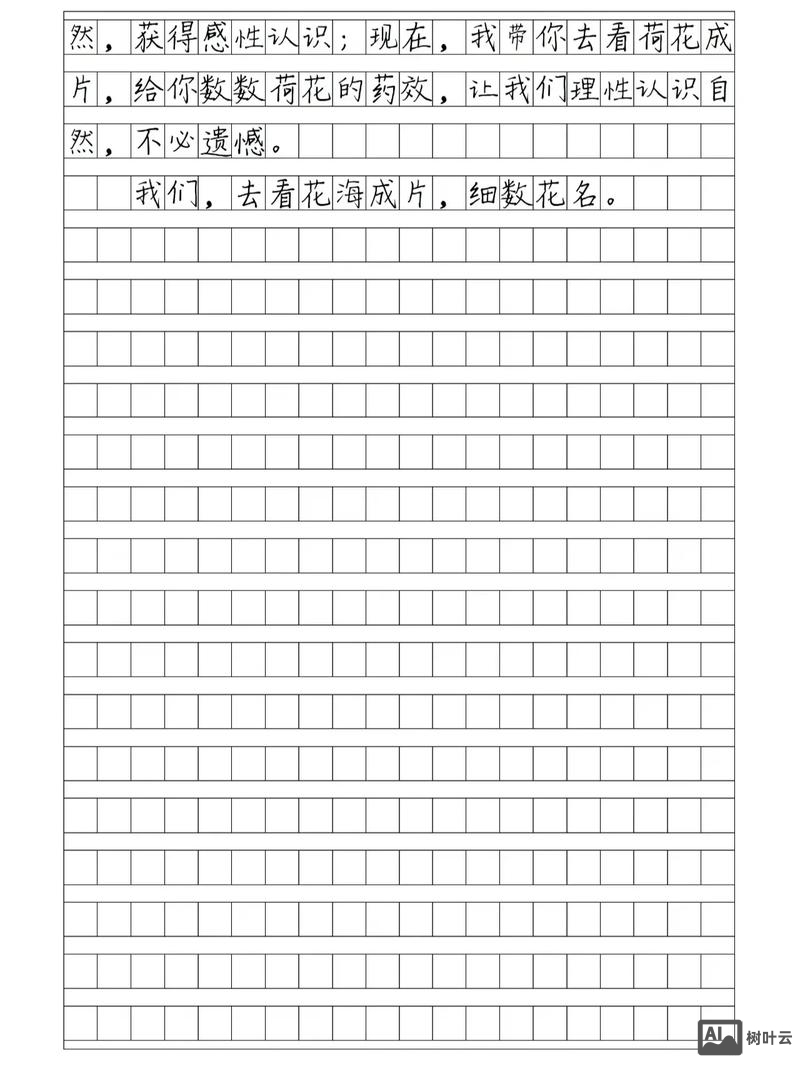 然，获得感性认识；现在，我带你去看荷花成
片，给你数数荷花的药效，让我们理性认识自
然，不必遗憾。
我们，去看花海成片，细数花名。
AI 树叶云